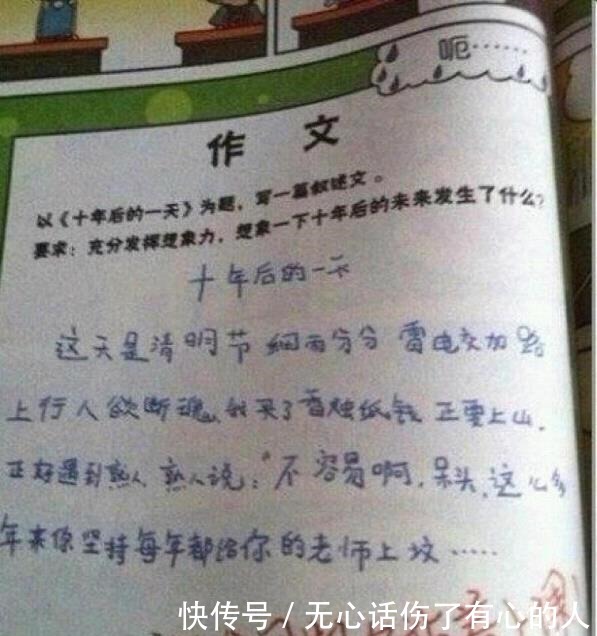 呃……
作 文
以《十年后的一天》为题，写一篇叙述文。
要求：充分发挥想象力，想象一下十年后的未来发生了什么？
十年后的一天
这天是清明节 细雨分分 雷电交加 路
上行人欲断魂、我买了香烛纸钱 正要上山.
正好遇到熟人 熟人说："不容易啊，呆头，这么多
年来你坚持每年都给你的老师上坟……
快传号／无心话伤了有心的人